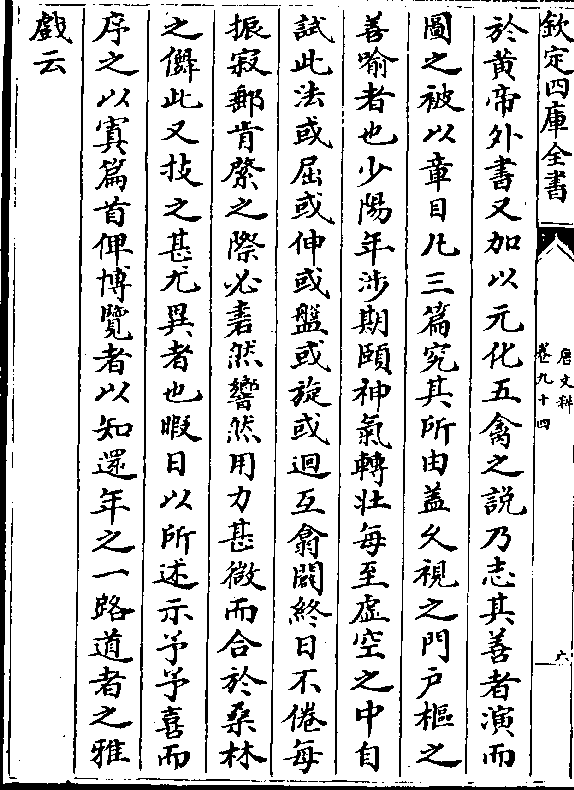 欽定四庫全書
唐文粹
卷九十四
六
於黄帝外書又加以元化五禽之說乃志其善者演而
圖之被以章目凡三篇究其所由蓋久視之門户樞之
善喻者也少陽年涉期頤神氣轉壯每至虚空之中自
試此法或屈或伸或盤或旋或迴互翕闢終日不倦每
振寂郵肯綮之際必砉然響然用力甚微而合於桑林
之儛此又技之甚尤異者也暇日以所述示予予喜而
序之以寘篇首俾博覽者以知還年之一路道者之雅
戲云